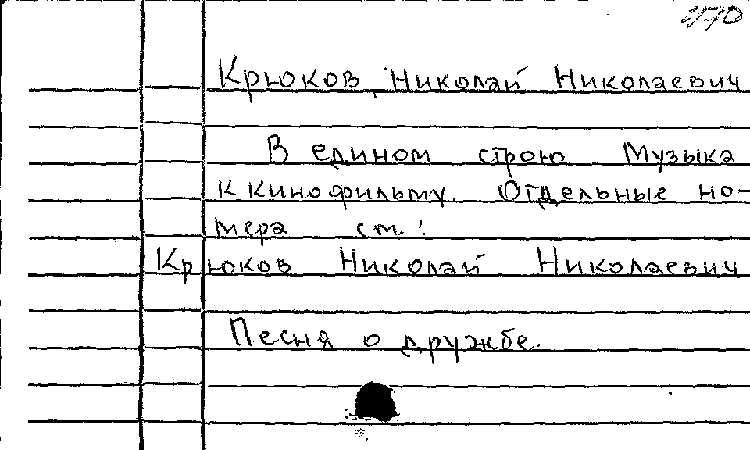 Крюков, Николай Николаевич
В едином строю. Музыка
к кинофильму. Отдельные но-
мера см.:
Крюков Николай Николаевич
Песня о дружбе.